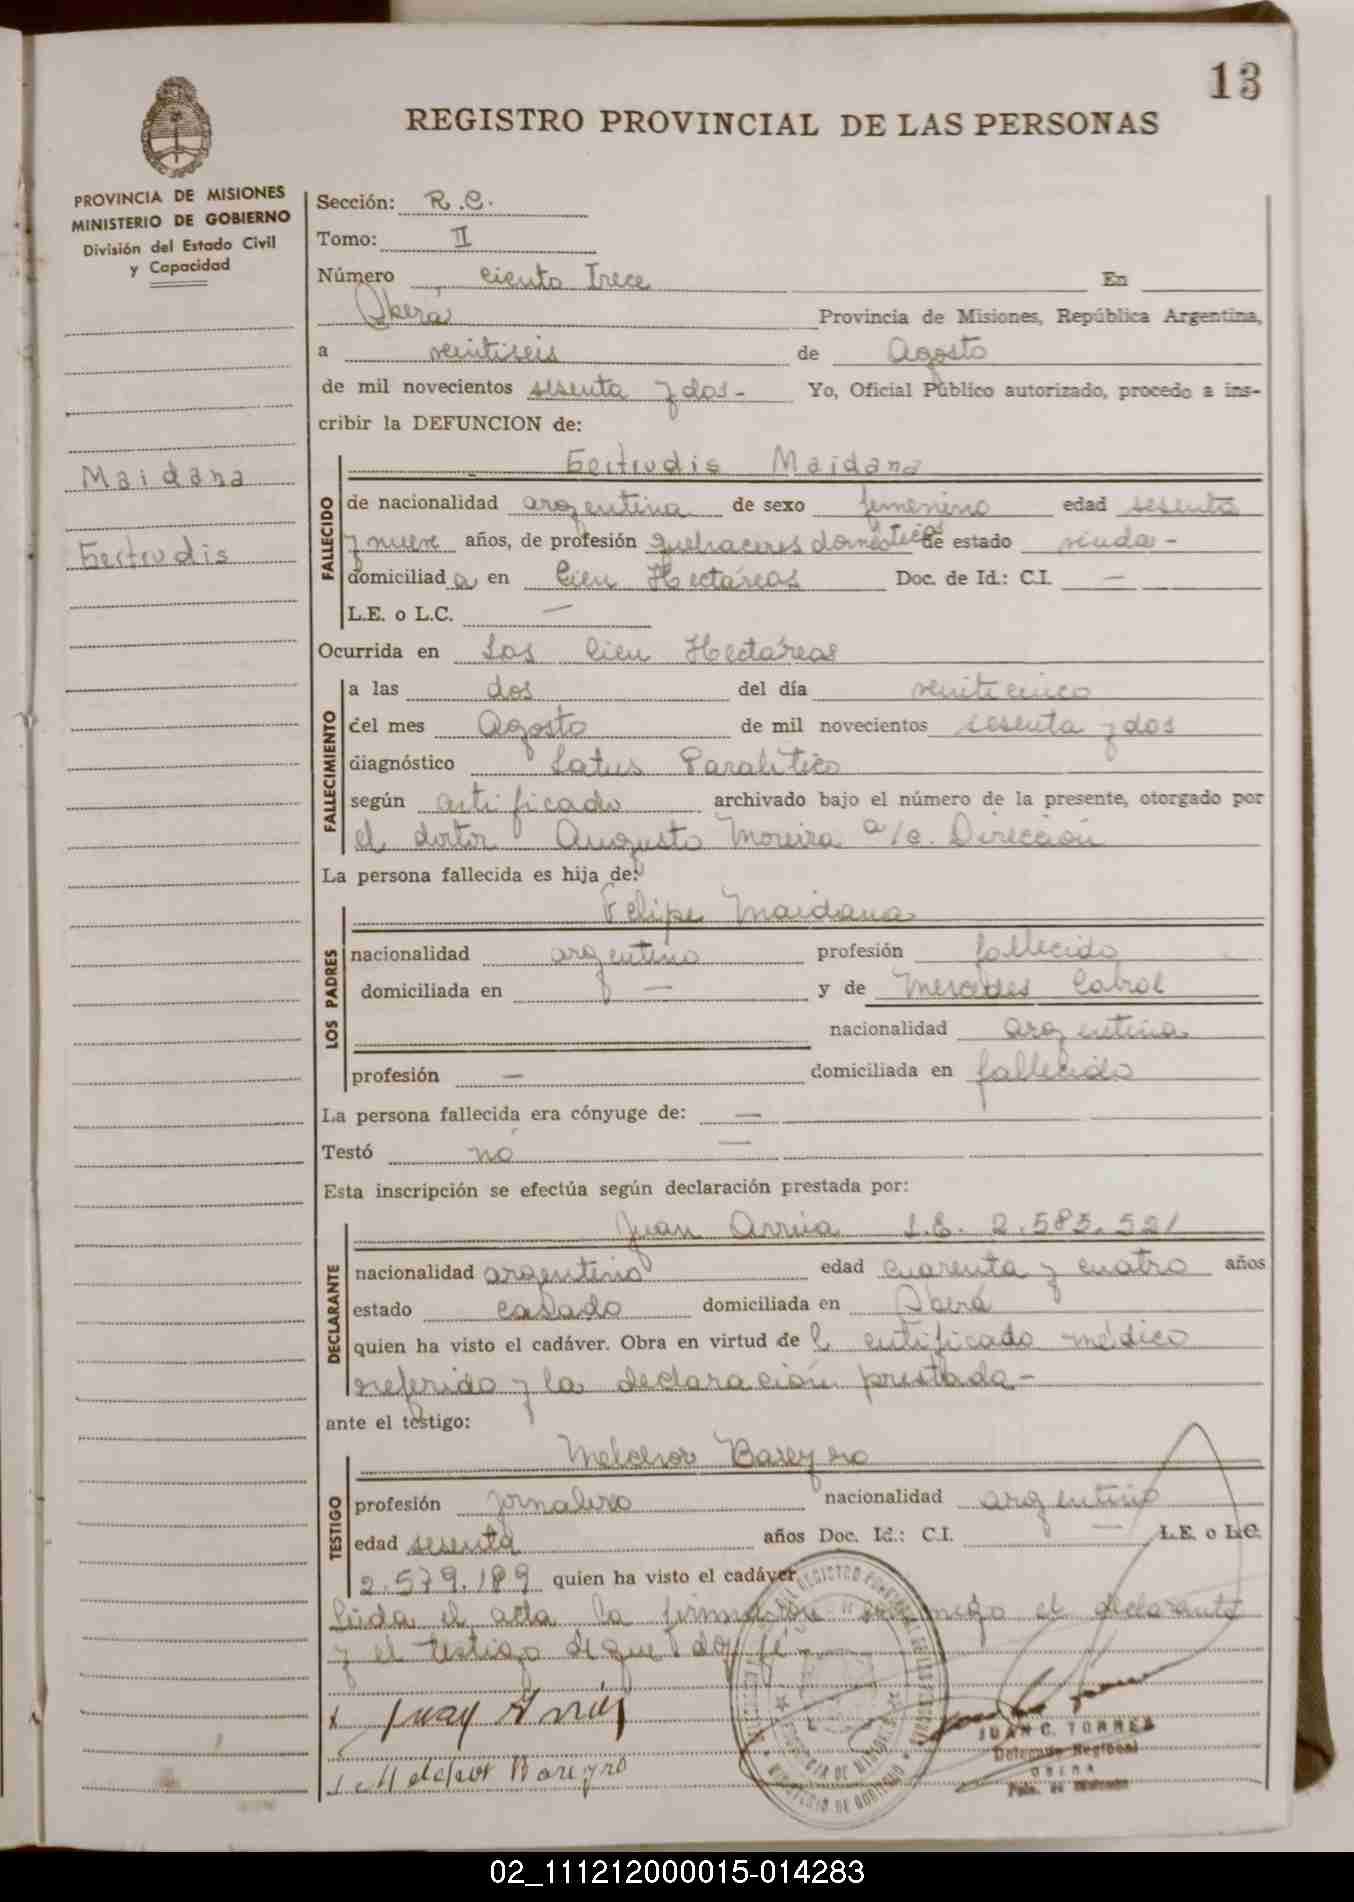 13
REGISTRO PROVINCIAL DE LAS PERSONAS
PROVINCIA DE MISIONES
MINISTERIO DE GOBIERNO
División del Estado Civil
y Capacidad
Maidana
Gertrudis
Sección: R.C.
Tomo: II
Número ciento Trece En
Oberá Provincia de Misiones, República Argentina,
a veintiseis de Agosto
de mil novecientos sesenta y dos- Yo, Oficial Público autorizado, procedo a ins-
cribir la DEFUNCION de:
FALLECIDO
Gertrudis Maidana
de nacionalidad argentina de sexo femenino edad sesenta
y nueve años, de profesión quehaceres domésticos de estado viuda-
domiciliad a en Cien Hectáreas Doc. de Id.: C.I. —
L.E. o L.C. —
Ocurrida en Las Cien Hectáreas
FALLECIMIENTO
a las dos del día veinticinco
del mes Agosto de mil novecientos sesenta y dos
diagnóstico Latus Paralítico
según certificado archivado bajo el número de la presente, otorgado por
el doctor Augusto Moreira a/c. Dirección
La persona fallecida es hija de:
LOS PADRES
Felipe Maidana
nacionalidad argentino profesión fallecido
domiciliada en — y de Mercedes Cabral
nacionalidad argentina
profesión — domiciliada en fallecido
La persona fallecida era cónyuge de: —
Testó no —
Esta inscripción se efectúa según declaración prestada por:
DECLARANTE
Juan Arrúa L.E. 2.585.521
nacionalidad argentino edad cuarenta y cuatro años
estado casado domiciliada en Oberá
quien ha visto el cadáver. Obra en virtud de l certificado médico
referido y la declaración prestada-
ante el testigo:
TESTIGO
Melchor Bareyro
profesión jornalero nacionalidad argentino
edad sesenta años Doc. Id.: C.I. — L.E. o L.C.
2.579.189 quien ha visto el cadáver
Leída el acta la firman conmigo el declarante
y el testigo de que doy fé
Juan Arrúa
Melchor Bareyro
JUAN C. TORRES
Delegado Regional
OBERA
Pcia. de Misiones
02_111212000015-014283